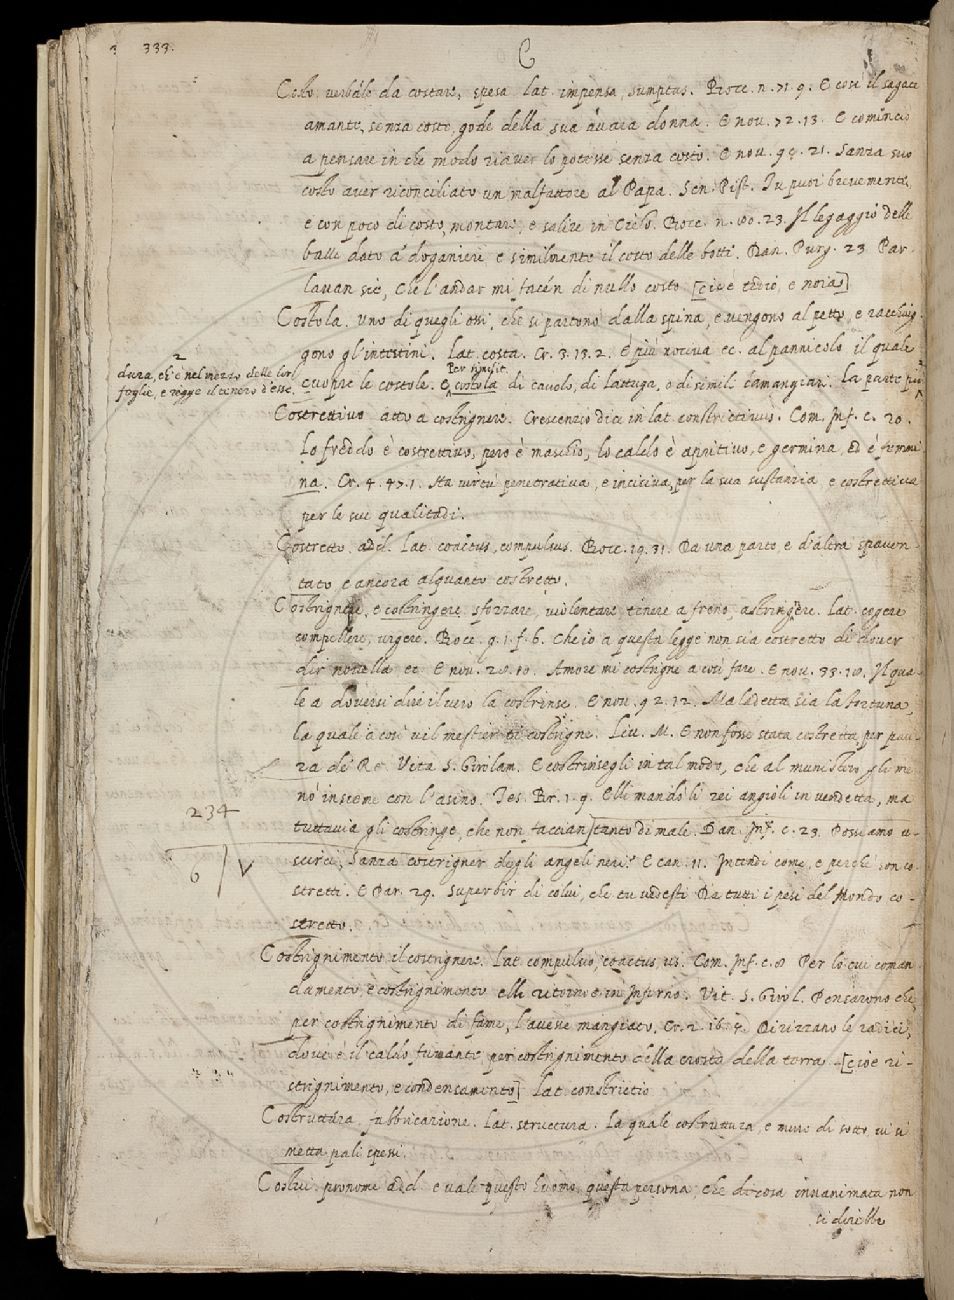 333.
C
Costo verbale da costare, spesa lat. impensa, sumptus. Bocc. n. 71. 9. E così il sagace
amante, senza costo, gode della sua avara donna. E nov. 72. 13. E cominciò
a pensare in che modo riaver lo potesse senza costo. E nov. 98. 21. Sanza suo
costo aver riconciliato un malfattore al Papa. Sen. Pist. Tu puoi brievemente,
e con poco di costo, montare, e salire in Cielo. Bocc. n. 80. 23. Il legaggio delle
balle dato a' doganieri e similmente il costo delle botti. Dan. Purg. 23 Par-
lavan sie, che l'andar mi facén di nullo costo [cioè tedio, e noia]
Costola. Uno di quegli ossi, che si partono dalla spina, e vengono al petto, e racchiug-
gono gl'intestini. Lat. costa. Cr. 3. 13. 2. È più nociva ec. al pannicolo il quale
Per simil.
cuopre le costole. E costola di cavolo, di lattuga, o di simili camangiari. La parte più
2
dura, ch'è nel mezzo delle lor
foglie, e regge il tenero d'esse.
Costrettivo atto a costrignere. Crescenzio dice in lat. constrictivus. Com. Inf. c. 20.
Lo freddo è costrettivo, però è maschio, lo caldo è apritivo, e germina, ed è femmi
na. Cr. 4. 47. 1. Ha virtù penetrativa, e incisiva, per la sua sustanzia, e costrettiva
per le sue qualitadi.
Costretto. add. Lat. coactus, compulsus. Bocc. 19. 31. Da una parte, e d'altra spaven-
tato e ancora alquanto costretto.
Costrignere, e costringere sforzare, violentare tenere a freno, astringere. Lat. cogere
compellere, urgere. Bocc. g. 1. f. 6. Che io a questa legge non sia costretto di dover
dir novella ec. E nov. 20. 10. Amore mi costrigne a così fare. E nov. 33. 10. Il qua-
le a doversi dire il vero la costrinse. E nov. 92. 12. Maladetta sia la fortuna,
la quale a così vil mestier ti costrigne. Liv. M. E non fosse stata costretta per pau-
ra de' Re. Vita S. Girolam. E costrinsegli in tal modo, che al munistero gli me
nò insieme con l'asino. Tes. Br. 1. 9. Elli mandò li rei angioli in vendetta, ma
tuttavia gli costringe, che non facciano tanto di male. Dan. Inf. c. 23. Possiamo u-
scirci, Sanza costrigner degli angeli neri. E can. 11. Intendi come, e perchè son co-
stretti. E Par. 29. Superbir di colui, che tu vedesti Da tutti i pesi del Mondo co-
stretto.
234
6
V
Costrignimento, il costrignere. Lat. compulsio, coactus, us. Com. Inf. c. 8 Per lo cui coman
damento, e costrignimento elli ritornoe in Inferno. Vit. S. Girol. Pensarono che
per costrignimento di fame, l'avesse mangiato. Cr. 2. 16. 4. Dirizzano le radici,
dove è il caldo fumante per costrignimento della crosta della terra [cioè ri-
strignimento, e condensamento] Lat. constrictio
Costruttura, fabbricazione. Lat. structura. La quale costruttura, e muro di sotto, vi si
metta pali spessi.
Costui. pronome add. e vale questo huomo, questa persona, che di cosa innanimata non
si direbbe